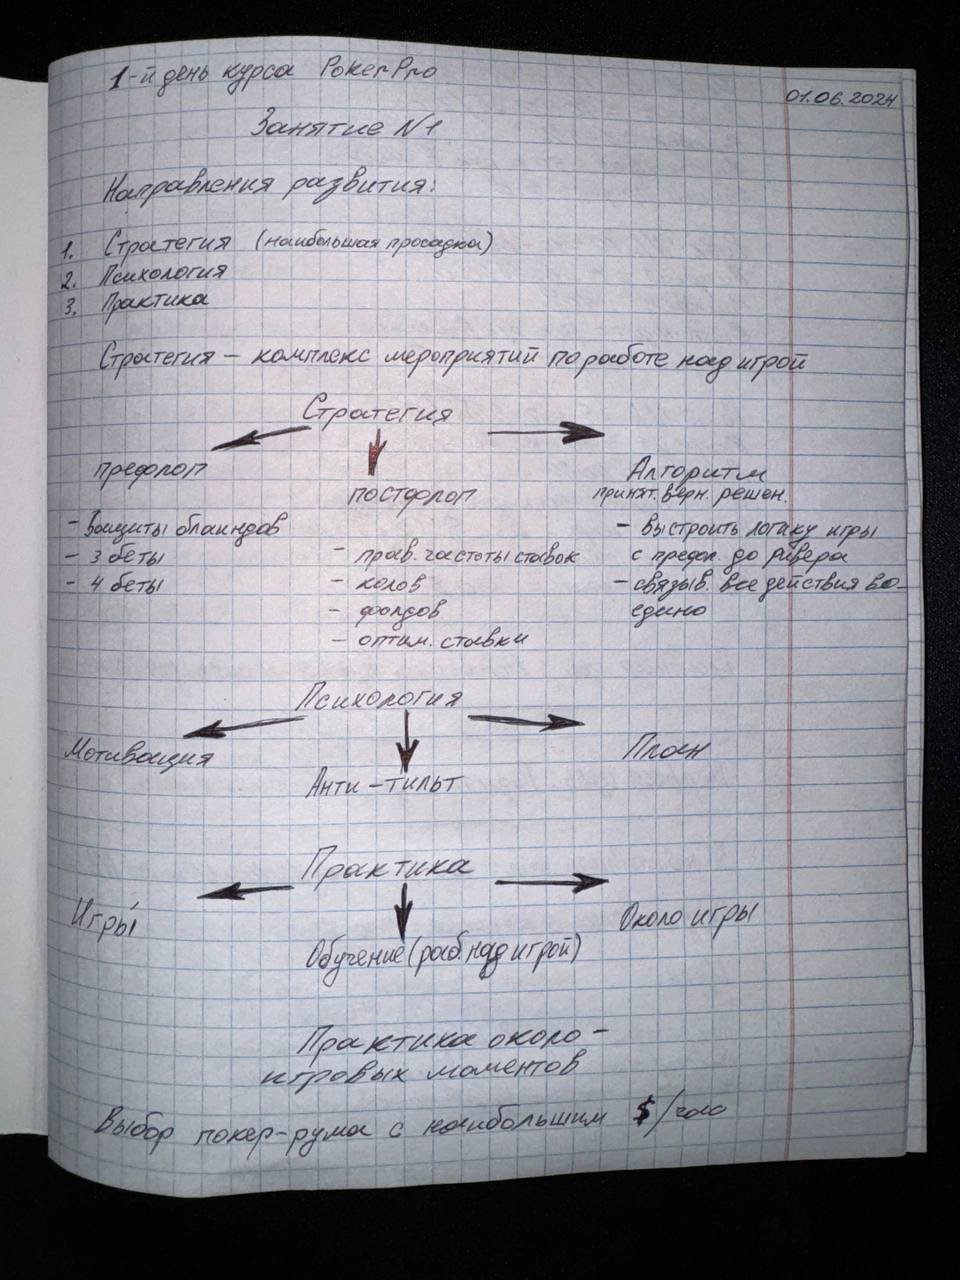 1-й день курса PokerPro
01.06.2024
Занятие N1
Направления развития:
1. Стратегия (наибольшая просадка)
2. Психология
3. Практика
Стратегия – комплекс мероприятий по работе над игрой
Стратегия
префлоп
постфлоп
Алгоритм
принят. верн. решен.
- Защиты блаиндов
- 3 беты
- 4 беты
- прав. частоты ставок
- колов
- фолдов
- оптим. ставки
- выстроить логику игры
с префл. до ривера
- связыв. все действия во-
едино
Психология
Мотивация
Анти-тильт
План
Практика
Игры́
Обучение (раб. над игрой)
Около игры
Практика около-
игровых моментов
Выбор покер-рума с наибольшим $/час